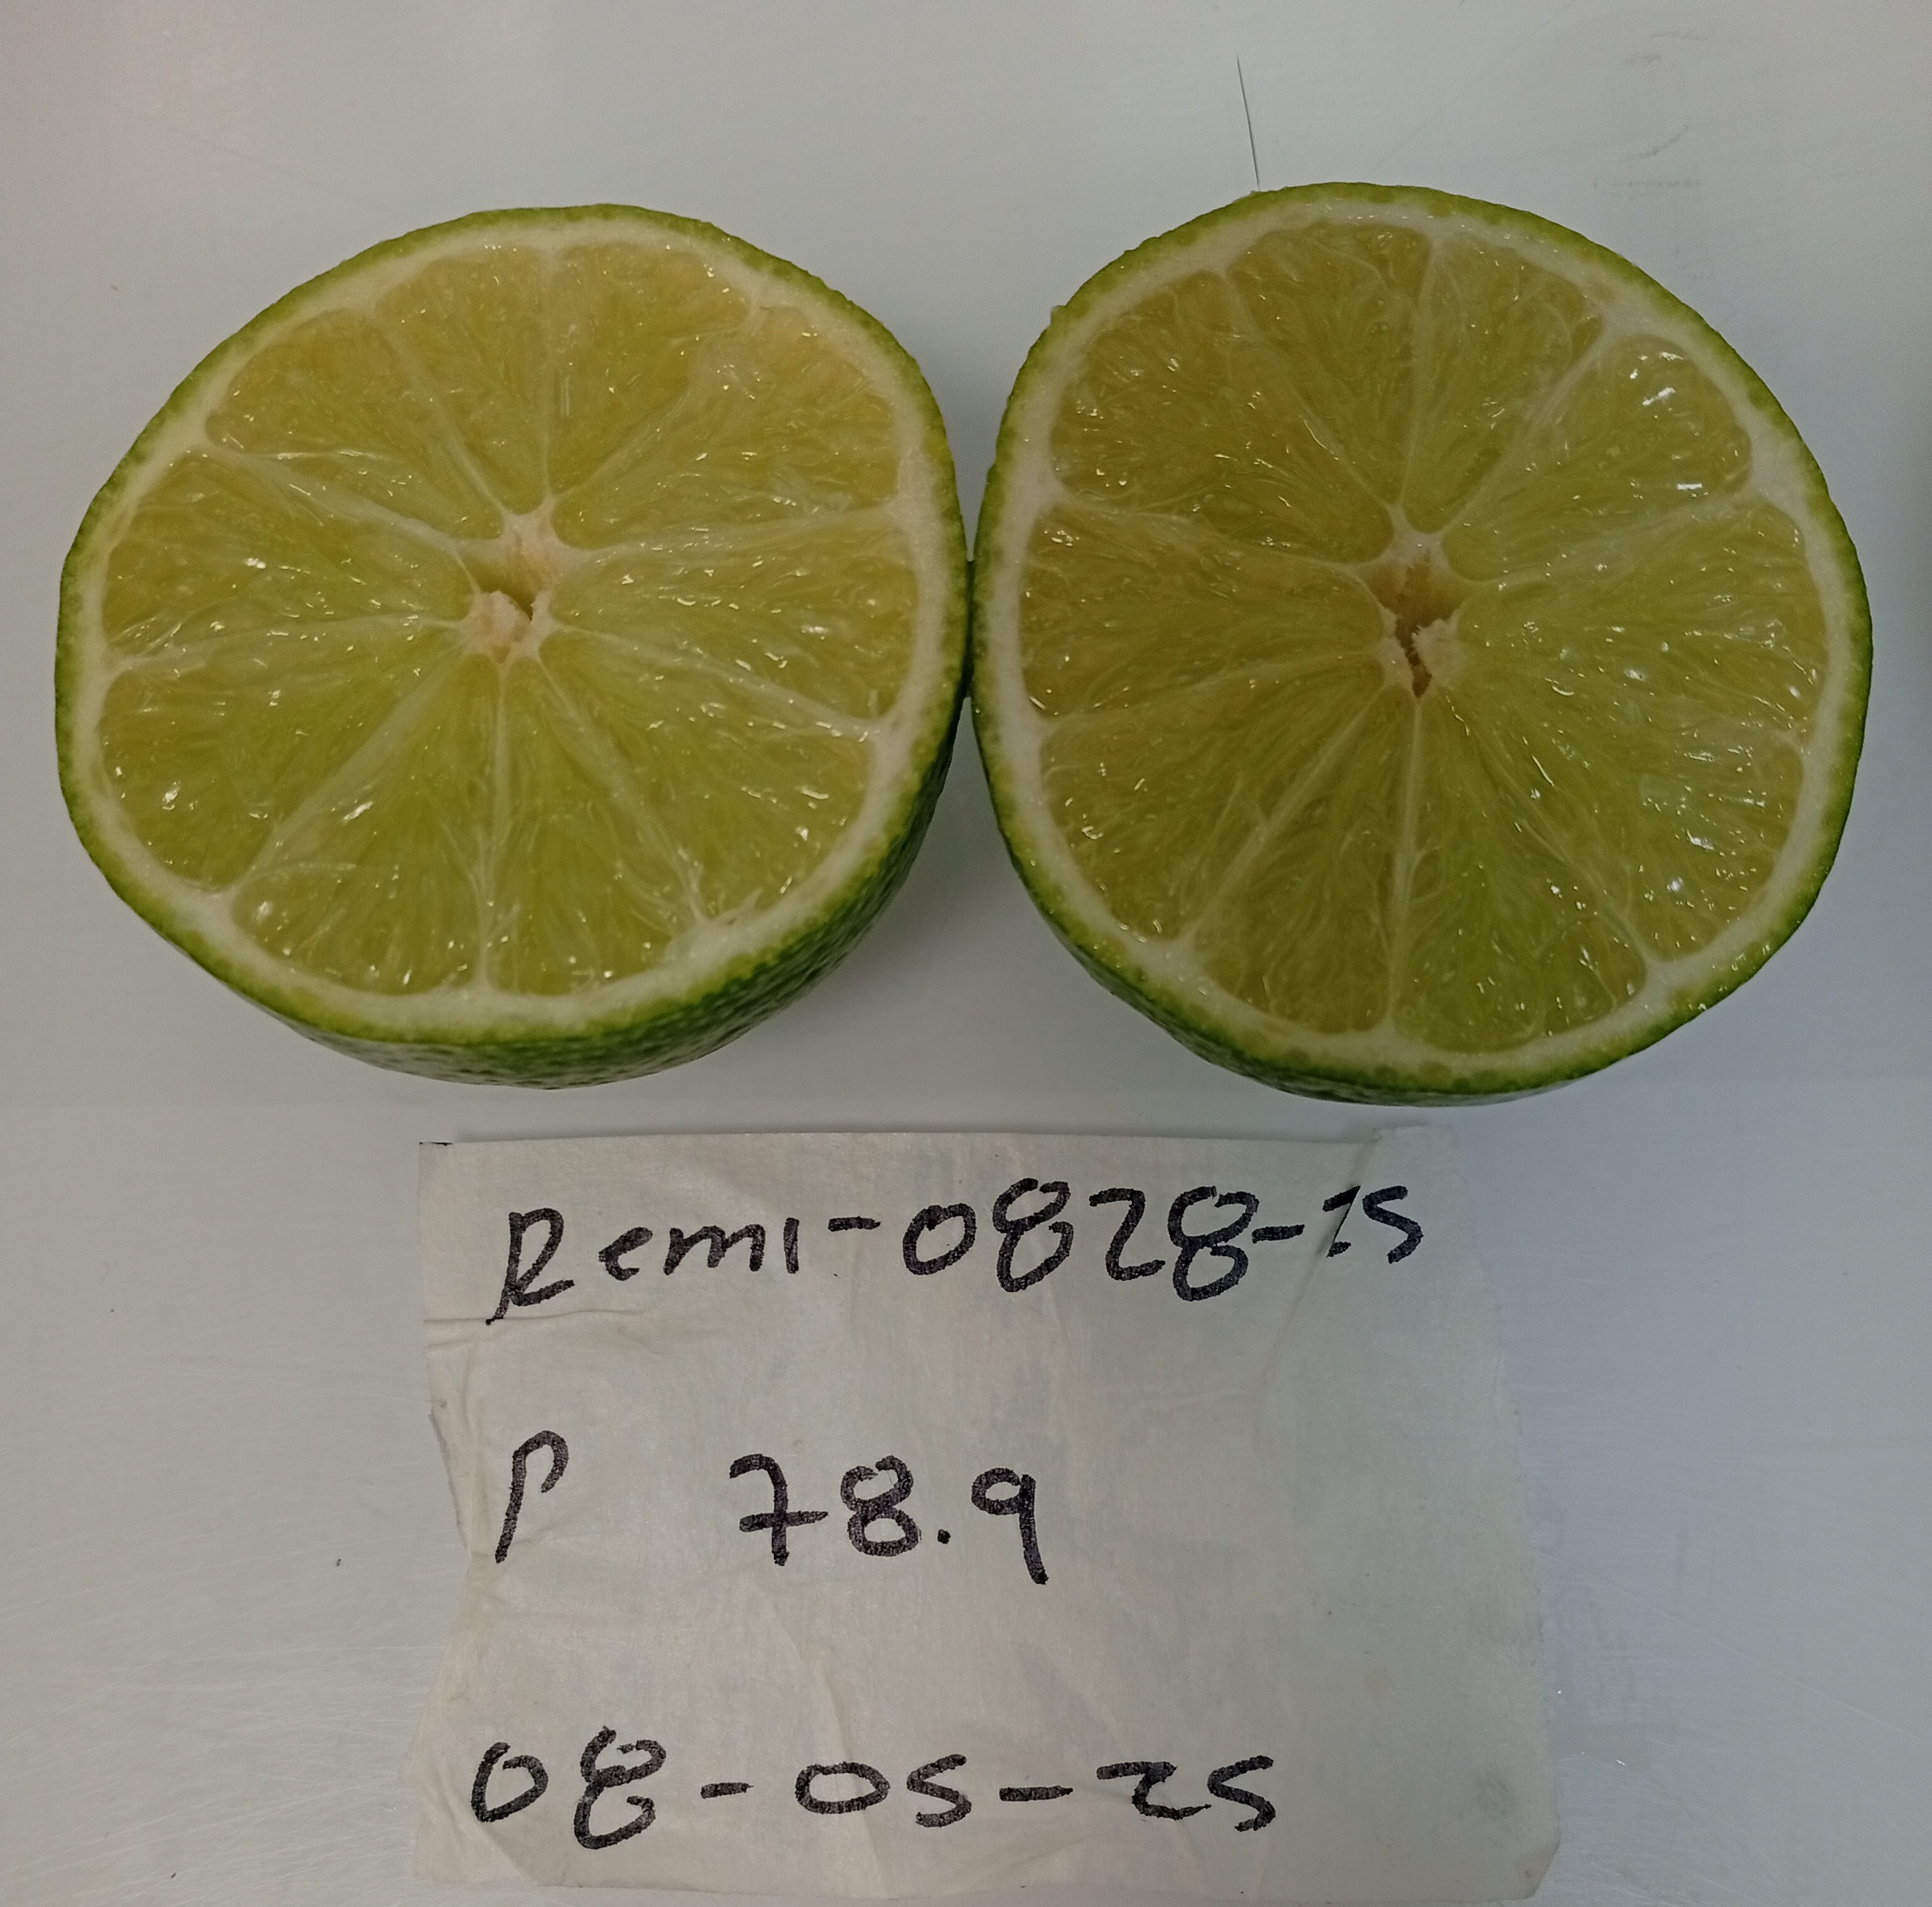 Remi-0828-25
P 78.9
08-05-25